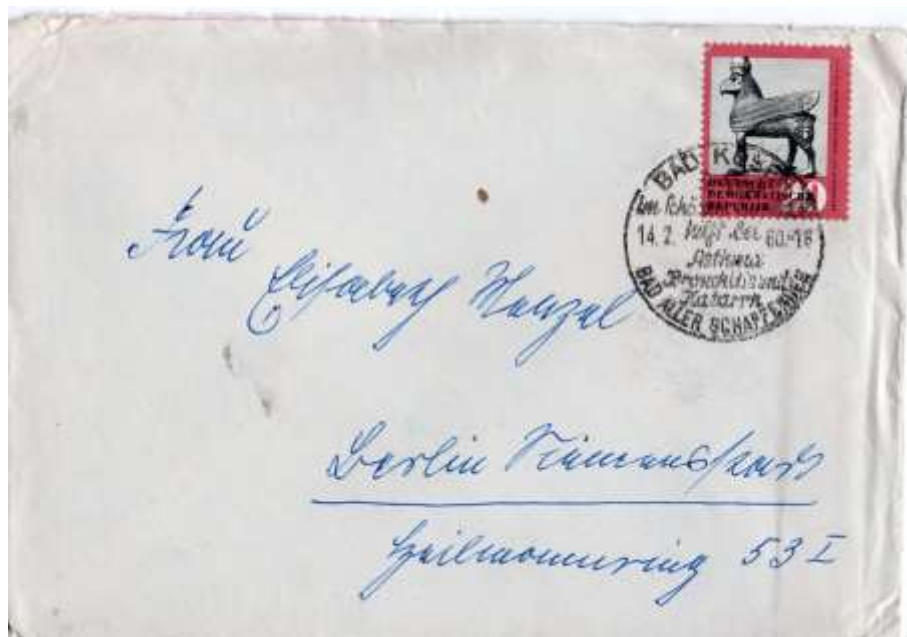 DEUTSCHE
DEMOKRATISCHE
REPUBLIK
BAD KÖS
Im
14.2. hilft bei 60.-18
Asthma
Bronchitis und
Katarrh
BAD ALLER SCHAFFENDEN
Frau
Elisabeth Menzel
Berlin Siemensstadt
Heilmannring 53 I